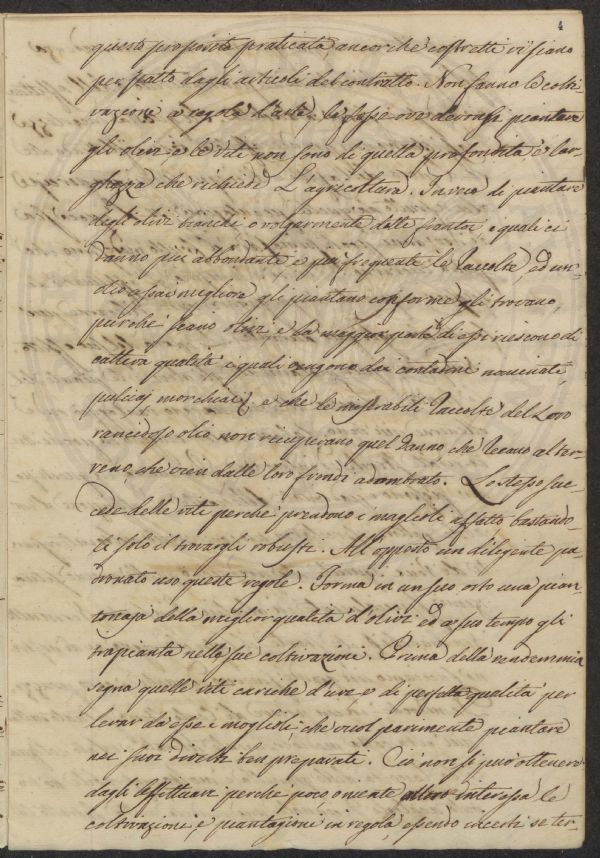 4
questo proposito praticata ancorchè costretti vi siano
per patto dagli articoli del contratto. Non fanno le colti-
vazioni a regola d'arte, le fosse ove devonsi piantare
gli olivi e le viti non sono di quella profondità e lar-
ghezza che richiede L'agricoltura. In vece di piantare
degli olivi bianchi o volgarmente detti frantoi i quali ci
danno più abbondante e più frequente le raccolte, ed un'
olio assai migliore gli piantano conforme gli trovano,
purchè siano olivi, e la maggior parte di essi riescono di
cattiva qualità i quali vengono dai contadini nominati
, morchiai, e che le miserabili raccolte del Loro
rancidoso olio non ricuperano quel danno che recano al ter-
reno, che vien dalle loro frondi adombrato. Lo stesso suc-
cede delle viti perchè prendono i maglioli affatto bastando-
li solo il trovargli robusti. All'opposto un diligente pa-
dronato usa queste regole. Forma in un suo orto una pian-
tonaja della miglior qualità d'olivi ed a suo tempo gli
trapianta nelle sue coltivazioni. Prima della vendemmia
segna quelle viti cariche d'uve e di perfetta qualità per
levar da esse i maglioli che vuol parimente piantare
nei suoi divelti ben preparati. Ciò non si può ottenere
dagli Affittuari perchè poco o niente interessa le
coltivazioni, e piantagioni in regola, essendo incerti se ter-